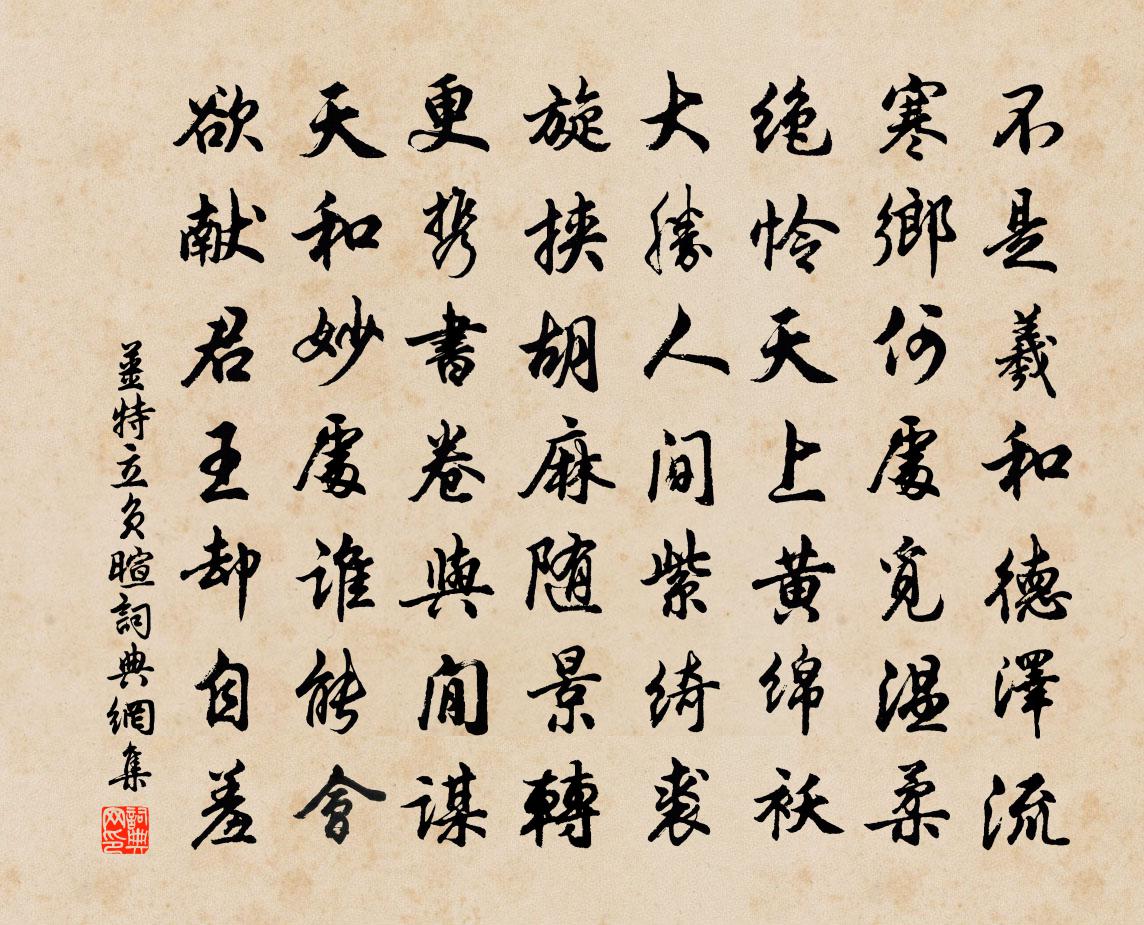 不是羲和德澤流
寒鄉何處覓溫柔
絶怜天上黃綿袄
大勝人間紫綺裘
旋挾胡麻随景轉
更携書卷與閒謀
天和妙處誰能會
欲献君王却自羞
薑特立負暄詞典網集
詞典网印